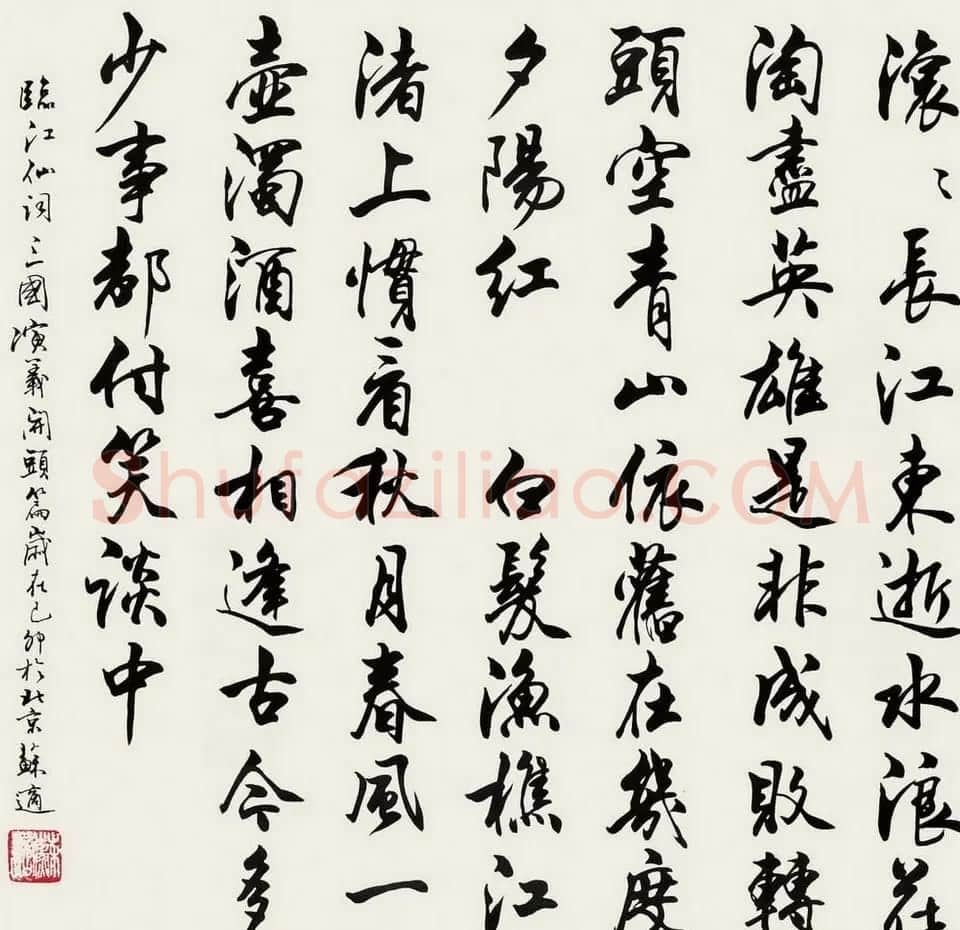 滾〻長江東逝水浪花
淘盡英雄是非成敗轉
頭空青山依舊在幾度
夕陽紅 白髮漁樵江
渚上慣看秋月春風一
壺濁酒喜相逢古今多
少事都付笑談中
臨江仙詞三國演義開頭篇歲在己卯於北京蘇適
Shufaziliao.COM